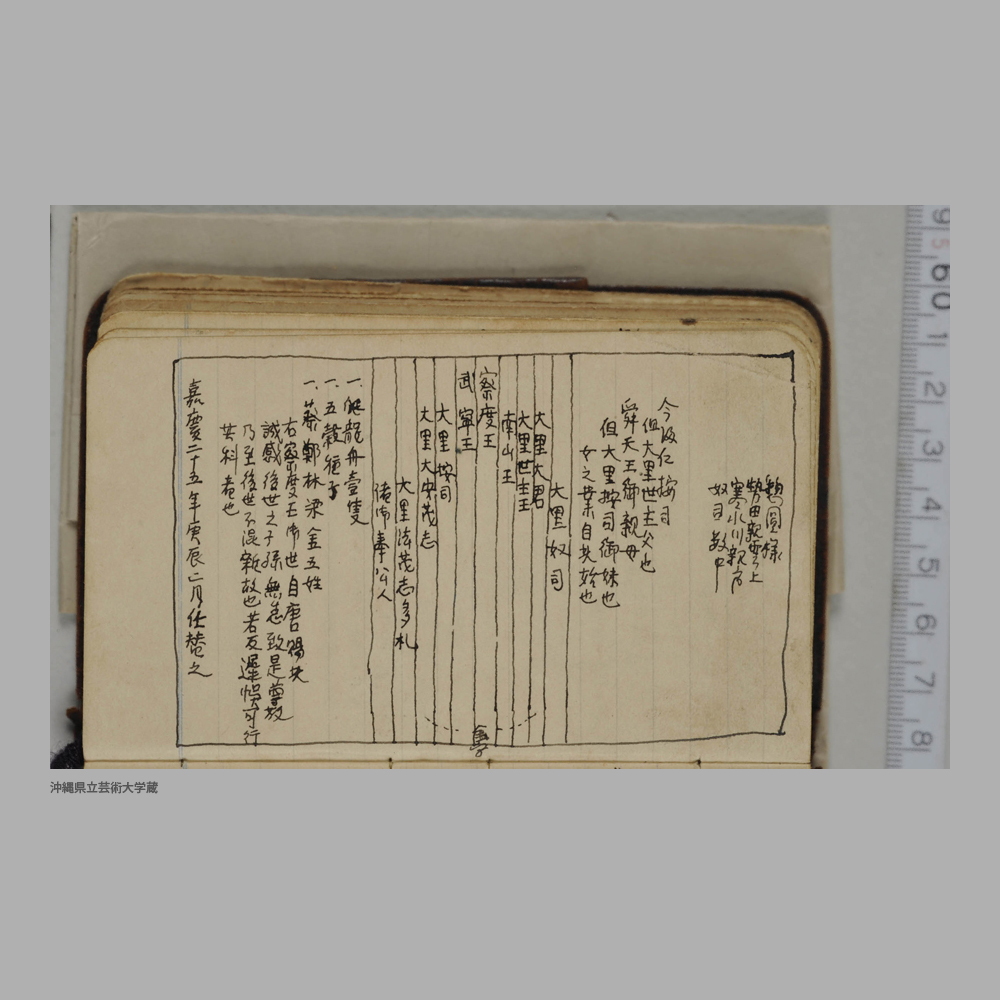 鶴圓様
勢田親雲上
寒水川親方
奴司敷中
今帰仁按司
但大里世主父也
舜天王御親母
但大里按司御妹也
女之業自其始也
大里奴司
大里大君
大里世主
南山王
察度王
武寧王
大里按司
大里大安茂志
大里法茂志多札
一、爬龍舟壹隻
一、五穀種子
一、蔡鄭林梁金五姓
右察度王御世自唐賜夾
誠感後世之子孫無忘致是尊敬
乃至後世不混雜故也若反遲悞可行
其科者也
嘉慶二十五年庚辰二月仕替之
沖縄県立芸術大学蔵
9
5
60
1
2
3
4
5
6
7
8